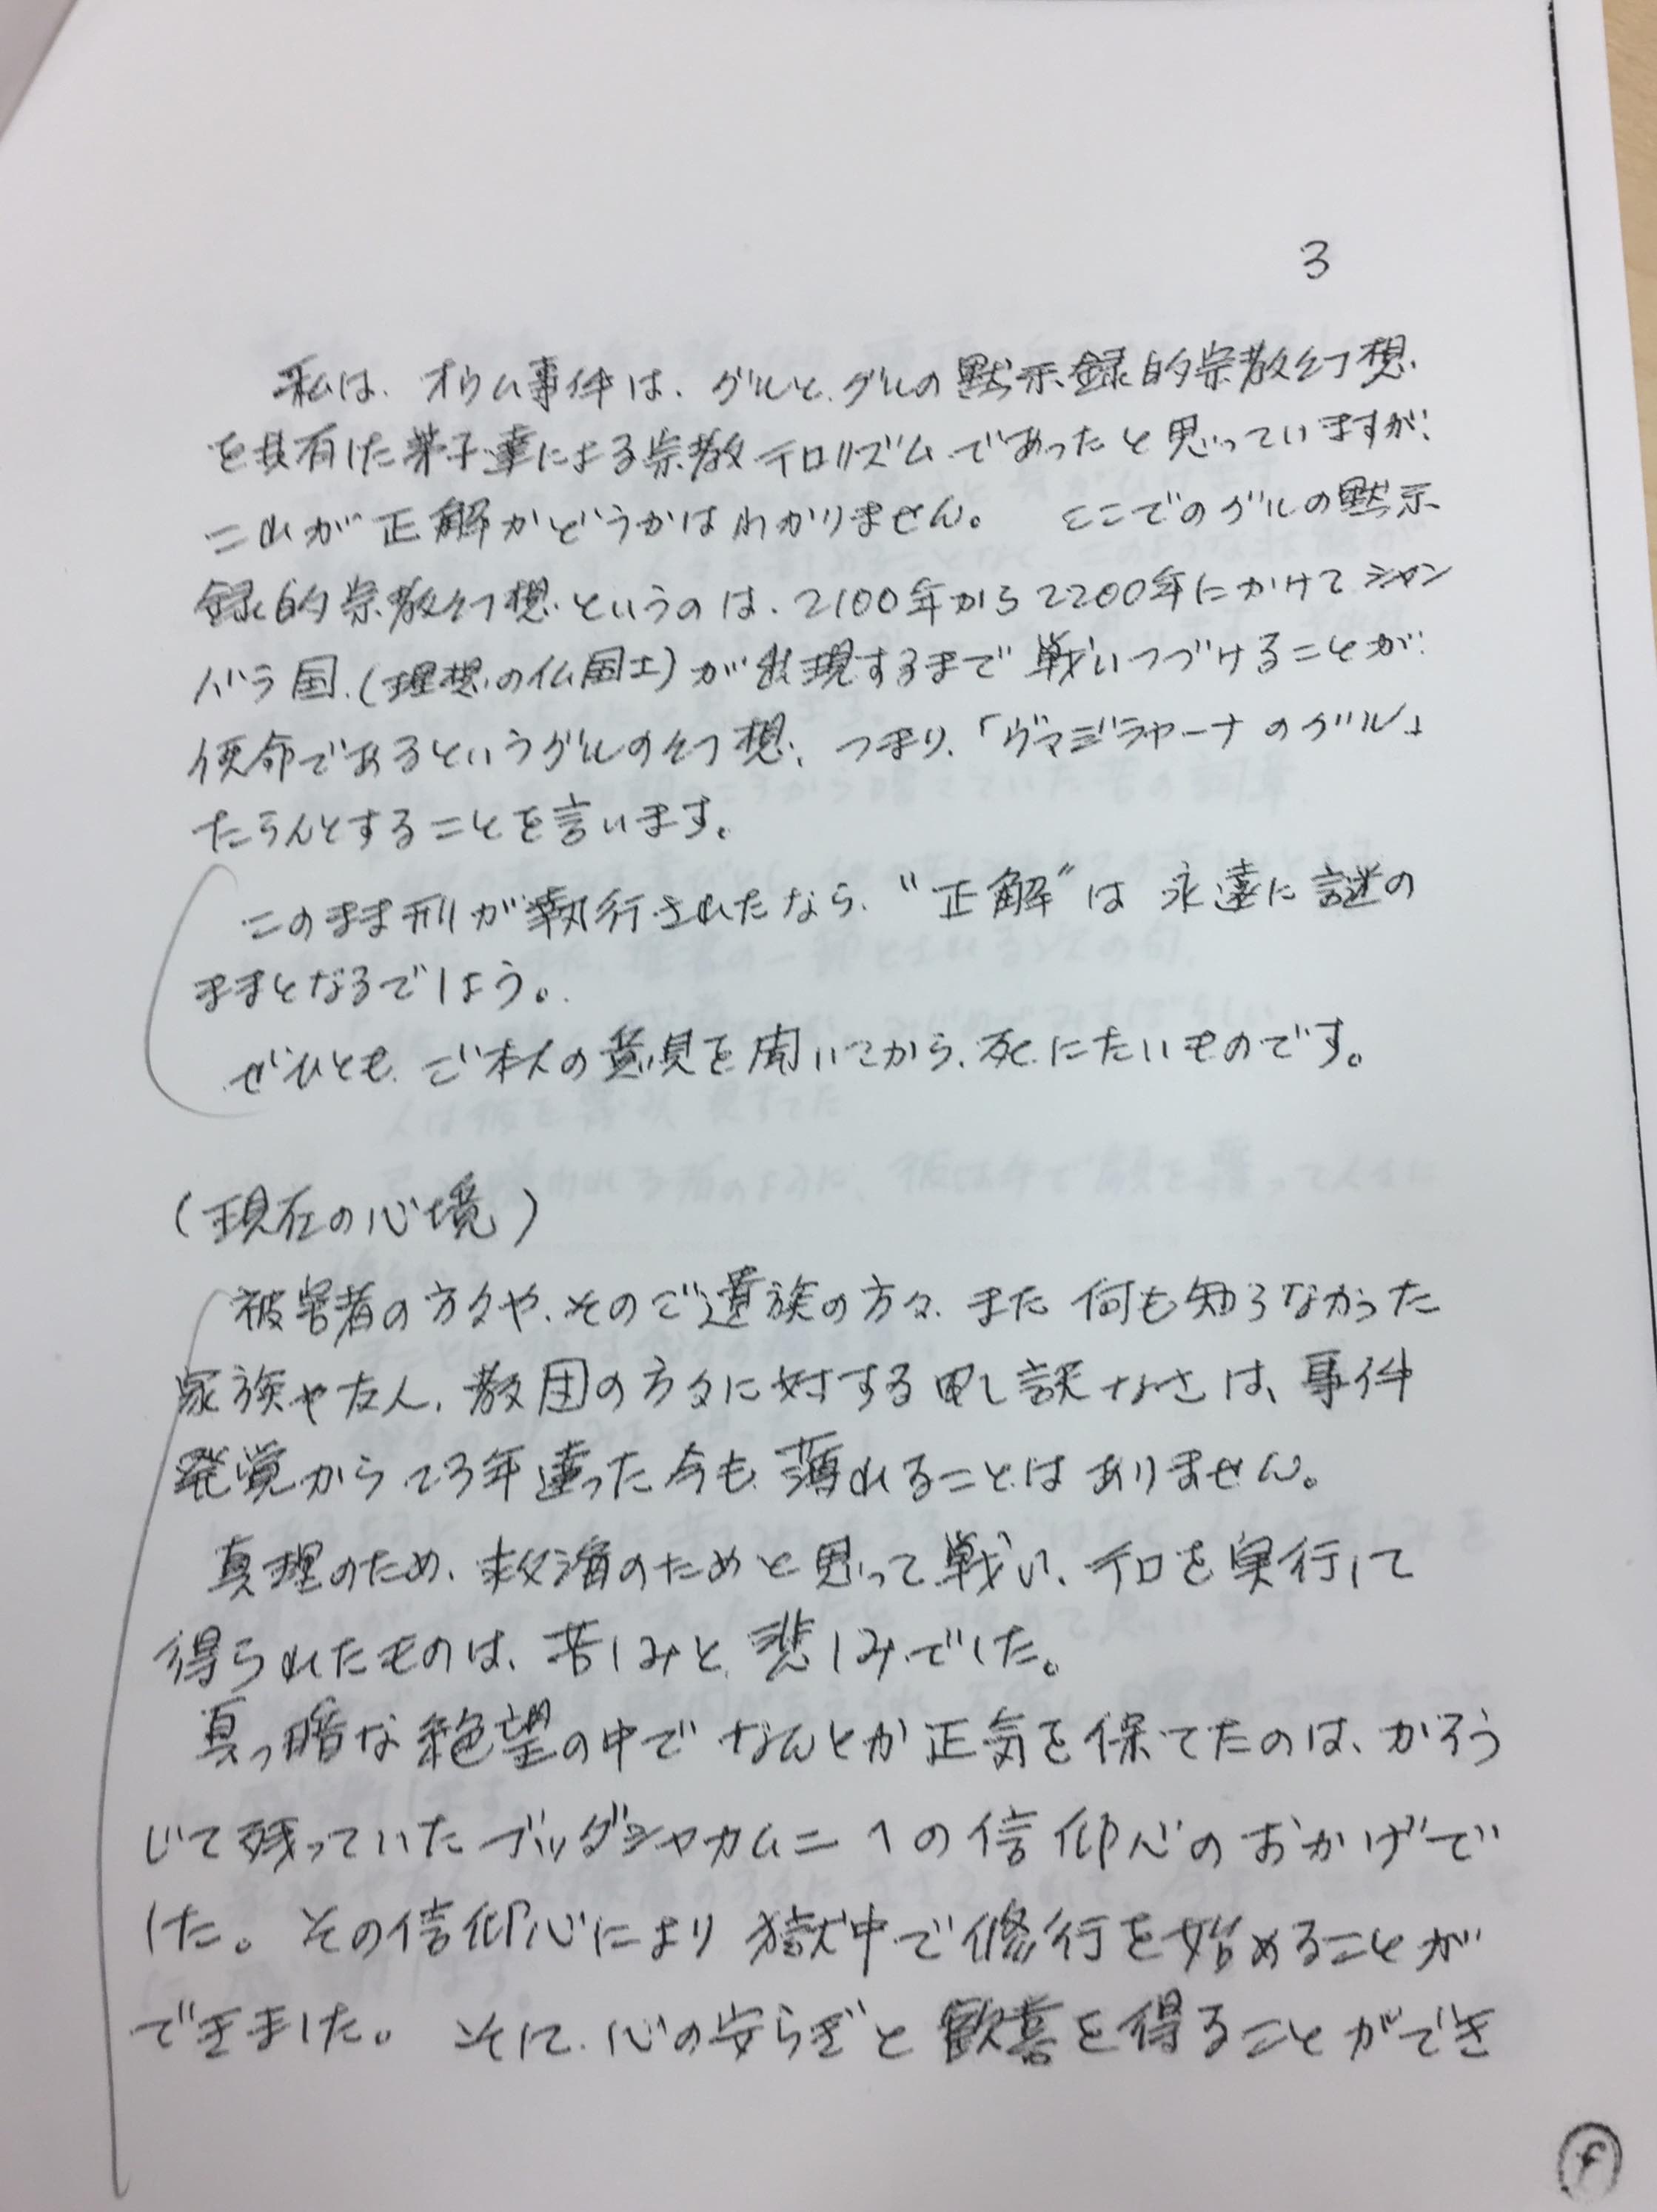 3
私は、オウム事件は、グルと、グルの黙示録的宗教幻想
を共有した弟子達による宗教テロリズムであったと思っていますが、
これが正解かどうかはわかりません。 ここでのグルの黙示
録的宗教幻想というのは、2100年から2200年にかけてシャン
バラ国、(理想の仏国土)が出現するまで戦いつづけることが、
使命であるというグルの幻想、つまり、「ヴァジラヤーナのグル」
たらんとすることを言います。
このまま刑が執行されたなら、“正解”は永遠に謎の
ままとなるでしょう。
ぜひとも、ご本人の意見を聞いてから、死にたいものです。
(現在の心境)
被害者の方々や、そのご遺族の方々、また何も知らなかった
家族や友人、教団の方々に対する申し訳なさは、事件
発覚から23年達った今も、薄れることはありません。
真理のため、救済のためと思って戦い、テロを実行して
得られたものは、苦しみと、悲しみでした。
真っ暗な絶望の中でなんとか正気を保てたのは、かろう
じて残っていたブッダシャカムニへの信仰心のおかげで
した。その信仰心により獄中で修行を始めることが
できました。 そして、心の安らぎと歓喜を得ることができ